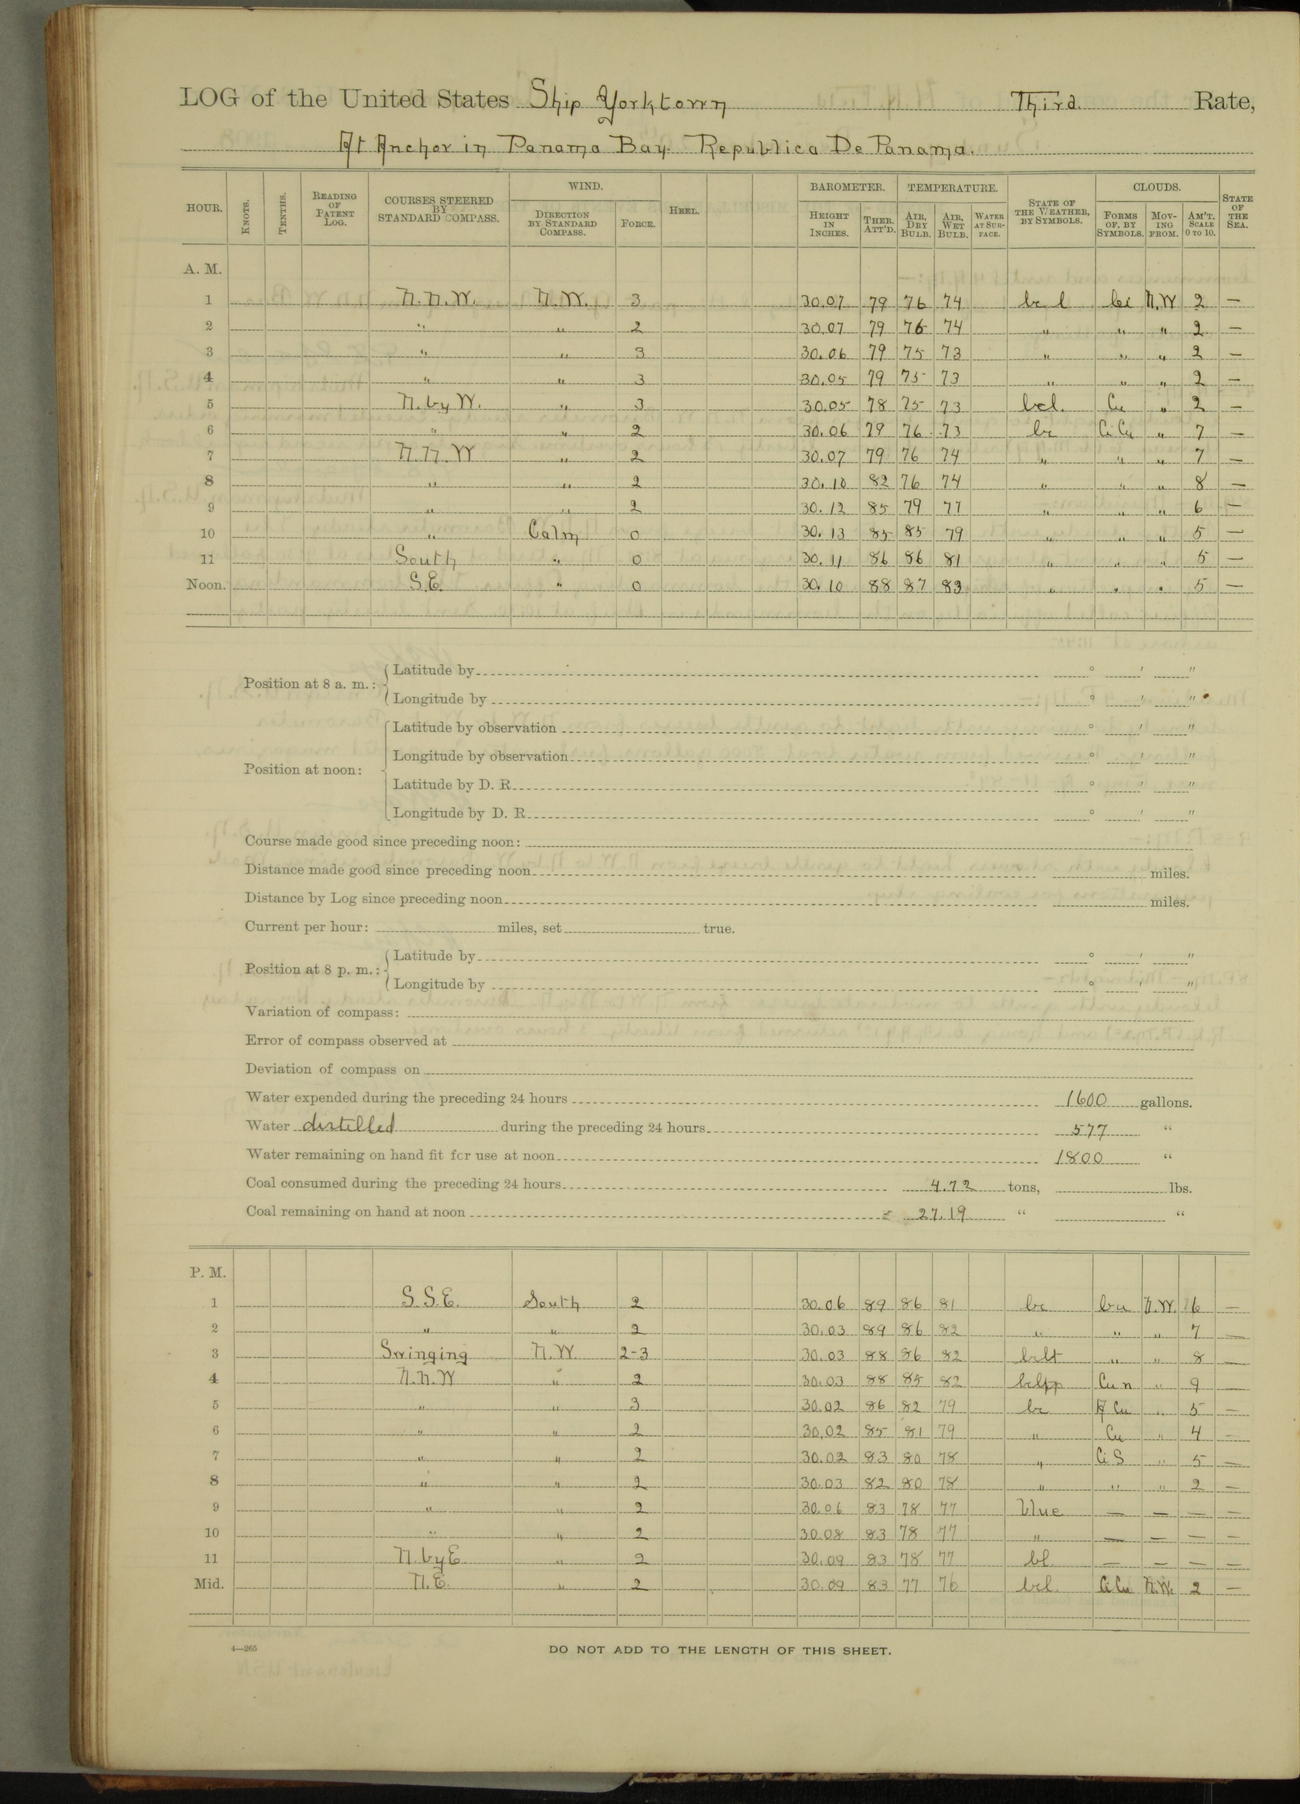 LOG of the United States Ship Yorktown Third Rate,
At Anchor in Panama Bay. Republica De Panama.
HOUR. KNOTS. TENTHS. READING OF PATENT LOG. COURSES STEERED BY STANDARD COMPASS. WIND. DIRECTION BY STANDARD COMPASS. FORCE. HEEL. BAROMETER. HEIGHT IN INCHES. THER. ATT'D. TEMPERATURE. AIR, DRY BULB. AIR, WET BULB. WATER AT SURFACE. STATE OF THE WEATHER, BY SYMBOLS. CLOUDS. FORMS OF, BY SYMBOLS. MOVING FROM. AM'T. SCALE 0 TO 10. STATE OF THE SEA.
A. M.
1 N.N.W. N.W. 3 30.07 79 76 74 bc l Ci N.W 2 —
2 " " 2 30.07 79 76 74 " " " 2 —
3 " " 3 30.06 79 75 73 " " " 2 —
4 " " 3 30.05 79 75 73 " " " 2 —
5 N. by W. " 3 30.05 78 75 73 bcl. Cu " 2 —
6 " " 2 30.06 79 76 73 bc Ci Cu " 7 —
7 N.N.W " 2 30.07 79 76 74 " " " 7 —
8 " " 2 30.10 82 76 74 " " " 8 —
9 " " 2 30.12 85 79 77 " " " 6 —
10 " Calm 0 30.13 85 85 79 " " " 5 —
11 South " 0 30.11 86 86 81 " " " 5 —
Noon. S.E. " 0 30.10 88 87 83 " " " 5 —
Position at 8 a. m.: Latitude by ° ′ ″
Longitude by ° ′ ″
Position at noon: Latitude by observation ° ′ ″
Longitude by observation ° ′ ″
Latitude by D. R. ° ′ ″
Longitude by D. R. ° ′ ″
Course made good since preceding noon:
Distance made good since preceding noon miles.
Distance by Log since preceding noon miles.
Current per hour: miles, set true.
Position at 8 p. m.: Latitude by ° ′ ″
Longitude by ° ′ ″
Variation of compass:
Error of compass observed at
Deviation of compass on
Water expended during the preceding 24 hours 1600 gallons.
Water distilled during the preceding 24 hours 577 "
Water remaining on hand fit for use at noon 1800 "
Coal consumed during the preceding 24 hours 4.72 tons, lbs.
Coal remaining on hand at noon 27.19 " "
P. M.
1 S.S.E. South 2 30.06 89 86 81 bc Cu N.W. 6 —
2 " " 2 30.03 89 86 82 " " " 7 —
3 Swinging N.W. 2-3 30.03 88 86 82 bclt " " 8 —
4 N.N.W " 2 30.03 88 85 82 bclpp Cu n " 9 —
5 " " 3 30.02 86 82 79 bc Cu " 5 —
6 " " 2 30.02 85 81 79 " Cu " 4 —
7 " " 2 30.02 83 80 78 " Ci S " 5 —
8 " " 2 30.03 82 80 78 " " " 2 —
9 " " 2 30.06 83 78 77 blue — — — —
10 " " 2 30.08 83 78 77 " — — — —
11 N. by E. " 2 30.09 83 78 77 bl — — — —
Mid. N.E. " 2 30.09 83 77 76 bcl. Ci Cu N.W. 2 —
4—265
DO NOT ADD TO THE LENGTH OF THIS SHEET.